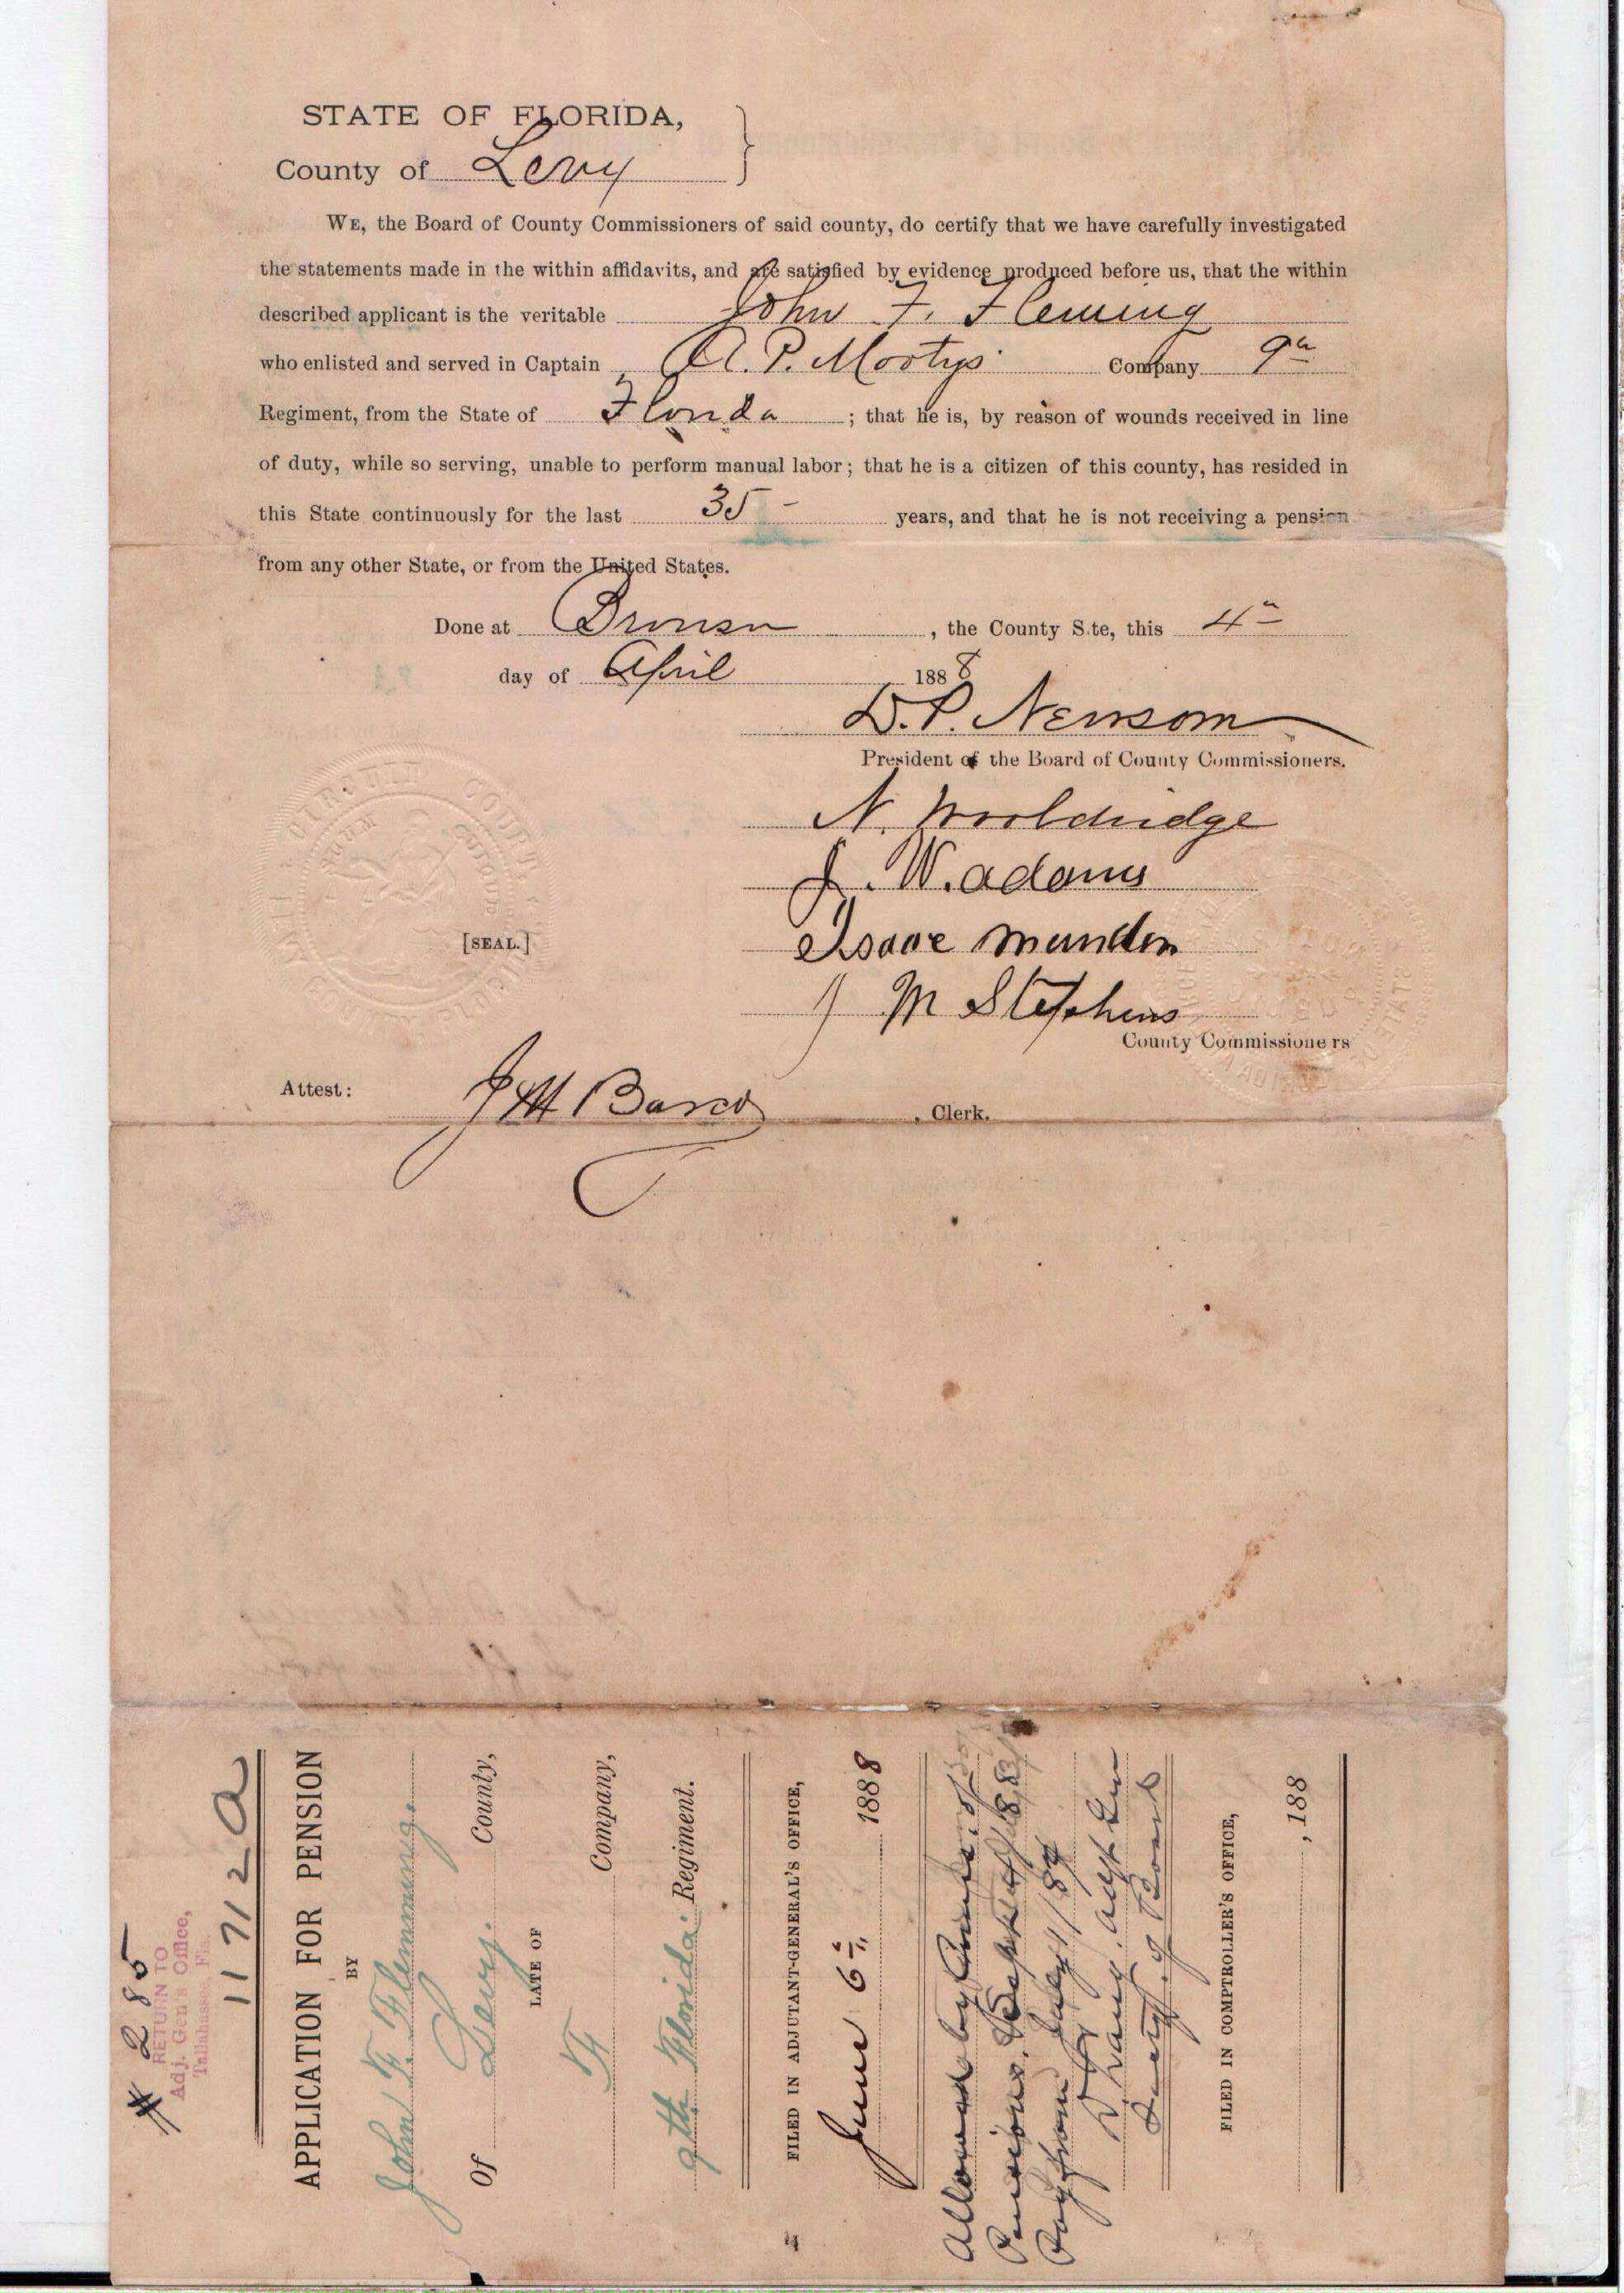 STATE OF FLORIDA,
County of Levy
WE, the Board of County Commissioners of said county, do certify that we have carefully investigated
the statements made in the within affidavits, and are satisfied by evidence produced before us, that the within
described applicant is the veritable John F. Fleming
who enlisted and served in Captain A. P. Mootys Company 9th
Regiment, from the State of Florida ; that he is, by reason of wounds received in line
of duty, while so serving, unable to perform manual labor; that he is a citizen of this county, has resided in
this State continuously for the last 35 - years, and that he is not receiving a pension
from any other State, or from the United States.
Done at Bronson , the County S.te, this 4th
day of April 1888
D. P. Newsom
President of the Board of County Commissioners.
N. Wooldridge
J. W. adams
Isaac Munden
J M Stephens
County Commissioners
[SEAL.]
Attest: J M Barco , Clerk.
# 285
RETURN TO
Adj. Gen's Office,
Tallahassee, Fla.
11712 a
APPLICATION FOR PENSION
BY
John F. Flemming.
Of Levy. County,
LATE OF
F Company,
9th Florida. Regiment.
FILED IN ADJUTANT-GENERAL'S OFFICE,
June 6th, 1888
Allowed by
Pensions.
Pay from July 1/89
D. Lang, Adjt Gen
Secty of Board
FILED IN COMPTROLLER'S OFFICE,
, 188